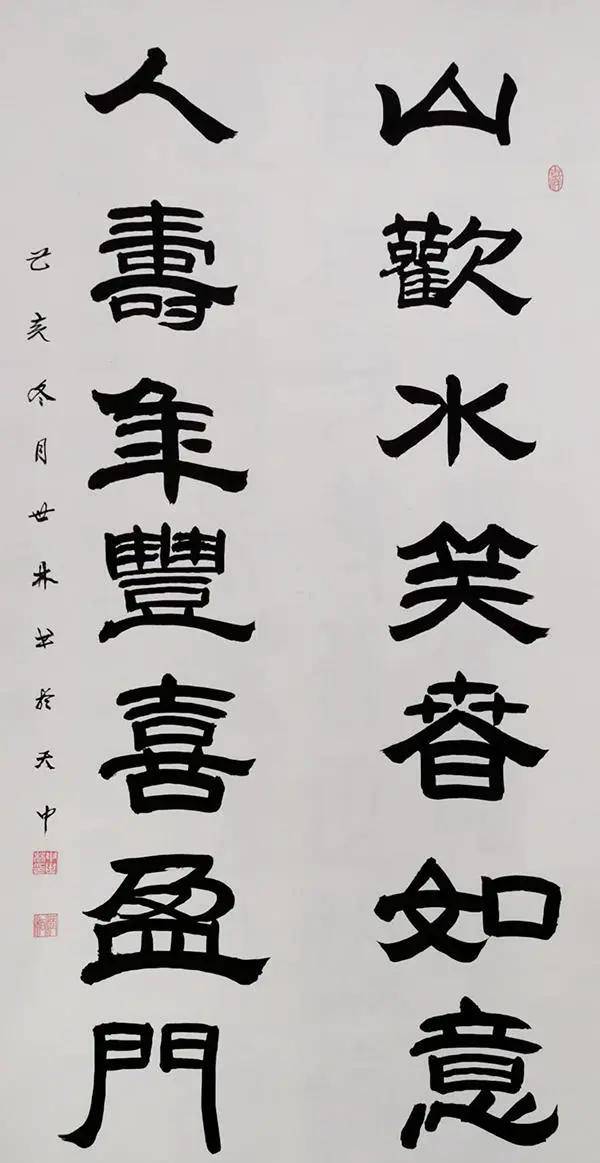 山歡水笑春如意
人壽年豐喜盈門
己亥冬月世林书於天中